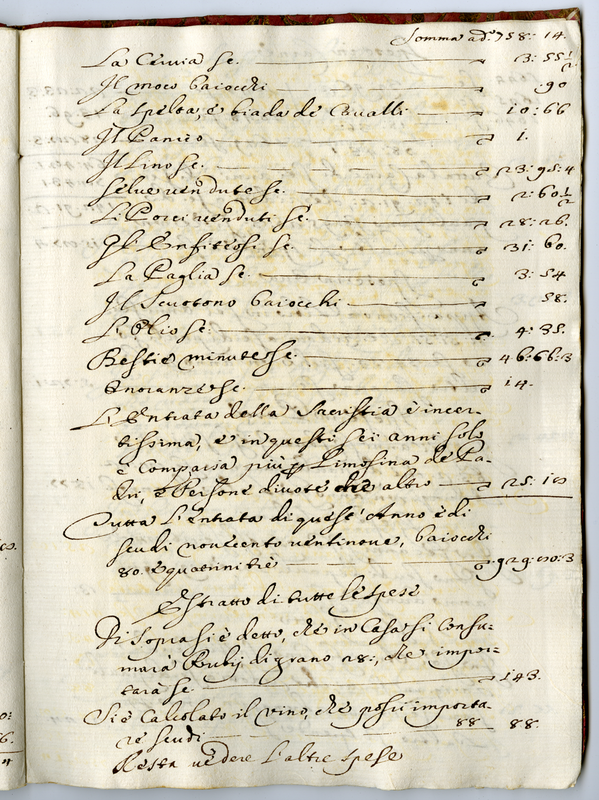 Somma ad.o 758: 14.
La Civaia sc. 3: 55 1/2
Il moco baiocchi 90
La Spelta, e biada de Cavalli 10: 66
Il Panico 1.
Il Lino sc. 23: 95: 4
Selve vendute sc. 2: 60 1/2
Li Porci venduti sc. 28: 26.
Gl'Enfiteosi sc. 31: 60.
La Paglia sc. 3: 54
Il Scuotono baiocchi 58.
L'Olio sc. 4: 35.
Bestie minute sc. 46: 66: 3
Onoranze sc. 14.
L'Entrata della Sacristia è incer-
tissima, e in questi sei anni solo
è Comparsa più p Limosina de Pa-
dri, e Persone divote che altro 25: 10
Tutta L'entrata di quest'Anno è di
scudi novecento ventinove, baiocchi
80. e quatrini tre 929: 80: 3
Estratto di tutte le spese
Di Sopra si è detto, che in Casa si consu-
marà Rubij di grano 28:, che impor-
tarà sc. 143.
Si è Calcolato il vino, che possi importa-
re scudi 88 88.
Resta vedere L'altre spese